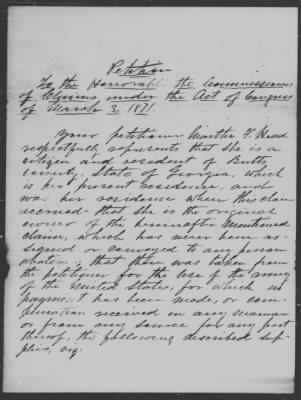 Petition
To the Honorable the Commissioners
of Claims under the Act of Congress
of March 3, 1871
Your petitioner Martha F.
respectfully represents that she is a
citizen and resident of Butts
County, State of Georgia, which
is her present residence, and
was her residence when this claim
accrued - that she is the original
owner of the hereinafter mentioned
claim, which has never been as-
signed or conveyed to any person
whatever; that there was taken from
the petitioner for the use of the army
of the United States, for which no
payment has been made, or com-
pensation received in any manner
or from any source for any part
thereof, the following described sup-
plies, viz: